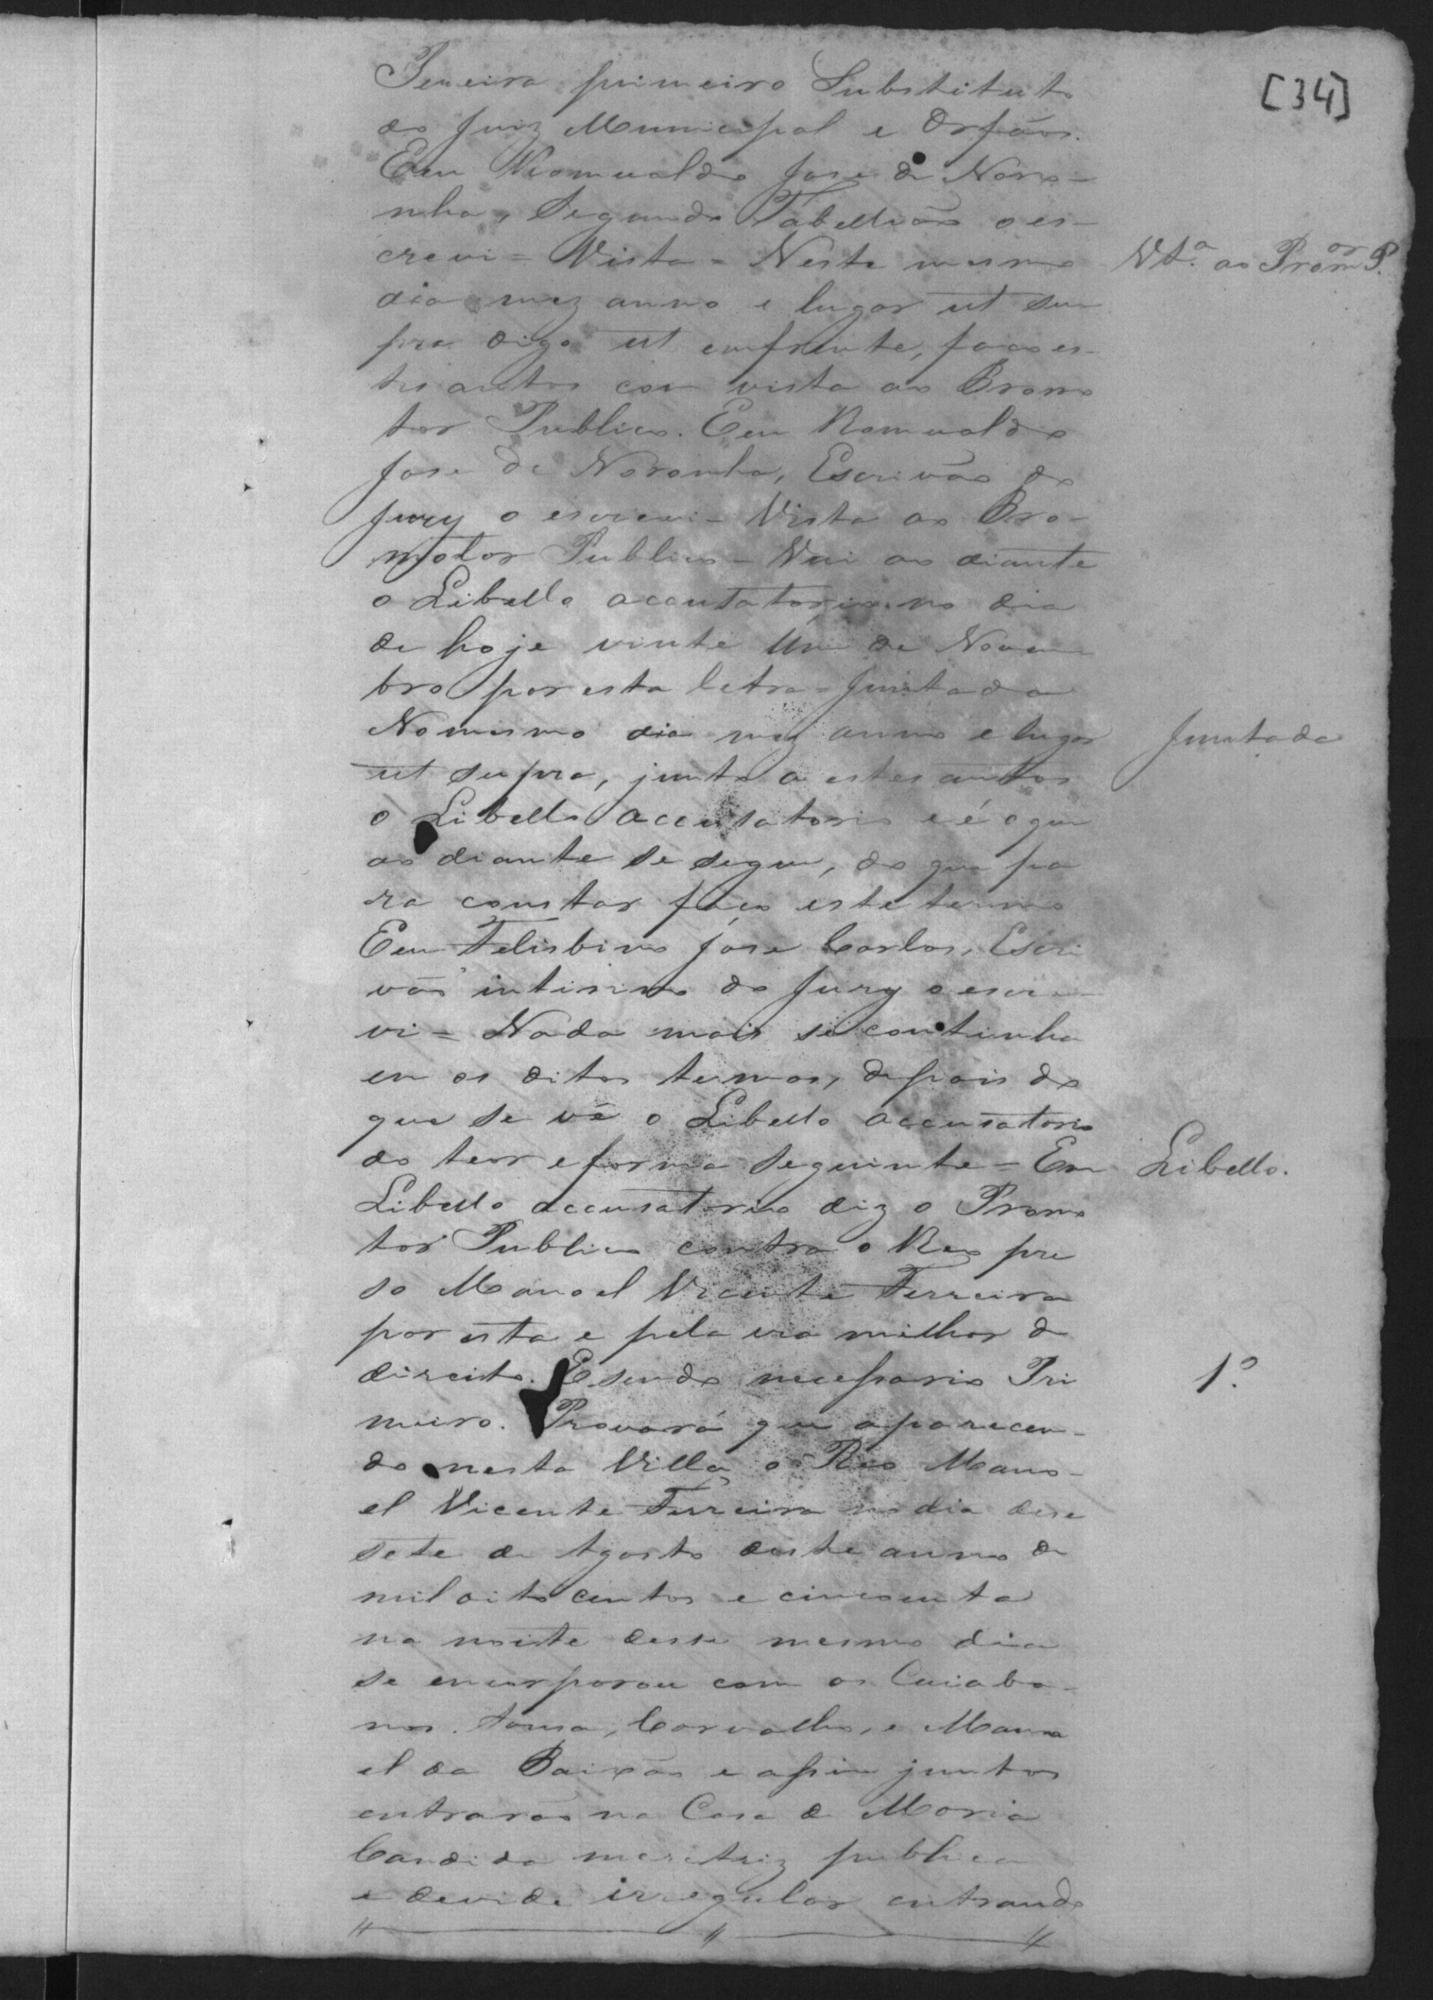 [34]
Pereira primeiro Substituto
do Juiz Municipal e Orfãos.
Eeu Romualdo Jose de Noro-
nha, Segundo Tabellião o es-
crevi = Vista = Neste mesmo
Vtª. ao Promor P.
dia mez anno e lugar ut su
pra digo ut emfrente, faço es-
tes autos com vista ao Promo
tor Publico. Eeu Romualdo
Jose de Noronha, Escrivão do
Jury o escrevi - Vista ao Pro-
motor Publico - Vai ao diante
o Libello accusatorio no dia
de hoje vinte um de Novem
bro por esta letra = Juntada
No mesmo dia mez anno e lugar
Juntada
ut supra, junto a estes autos
o Libello accusatorio e é o que
ao diante se segue, do que pa
ra constar faço este termo
Eeu Felisbino Jose Carlos, Escri
vão intirino do Jury o escre
vi = Nada mais se continha
em os ditos termos, depois do
que se vê o Libello accusatorio
do teor e forma seguinte = Em
Libello.
Libello accusatorio diz o Promo
tor Publico contra o Reo pre
so Manoel Vicente Ferreira
por esta e pela via milhor de
direito. E sendo necessario Pri
1º.
meiro. Provará que aparecen-
do nesta Villa o Reo Mano-
el Vicente Ferreira no dia dese
sete de Agosto deste anno de
mil oito centos e cincoenta
na noite desse mesmo dia
se encorporou com os Cuiaba-
nos. Sousa, Carvalho, e Mano
el da Paixão e assim juntos
entrarão na Casa de Maria
Candida meretriz publica
e de vida irregular entrando